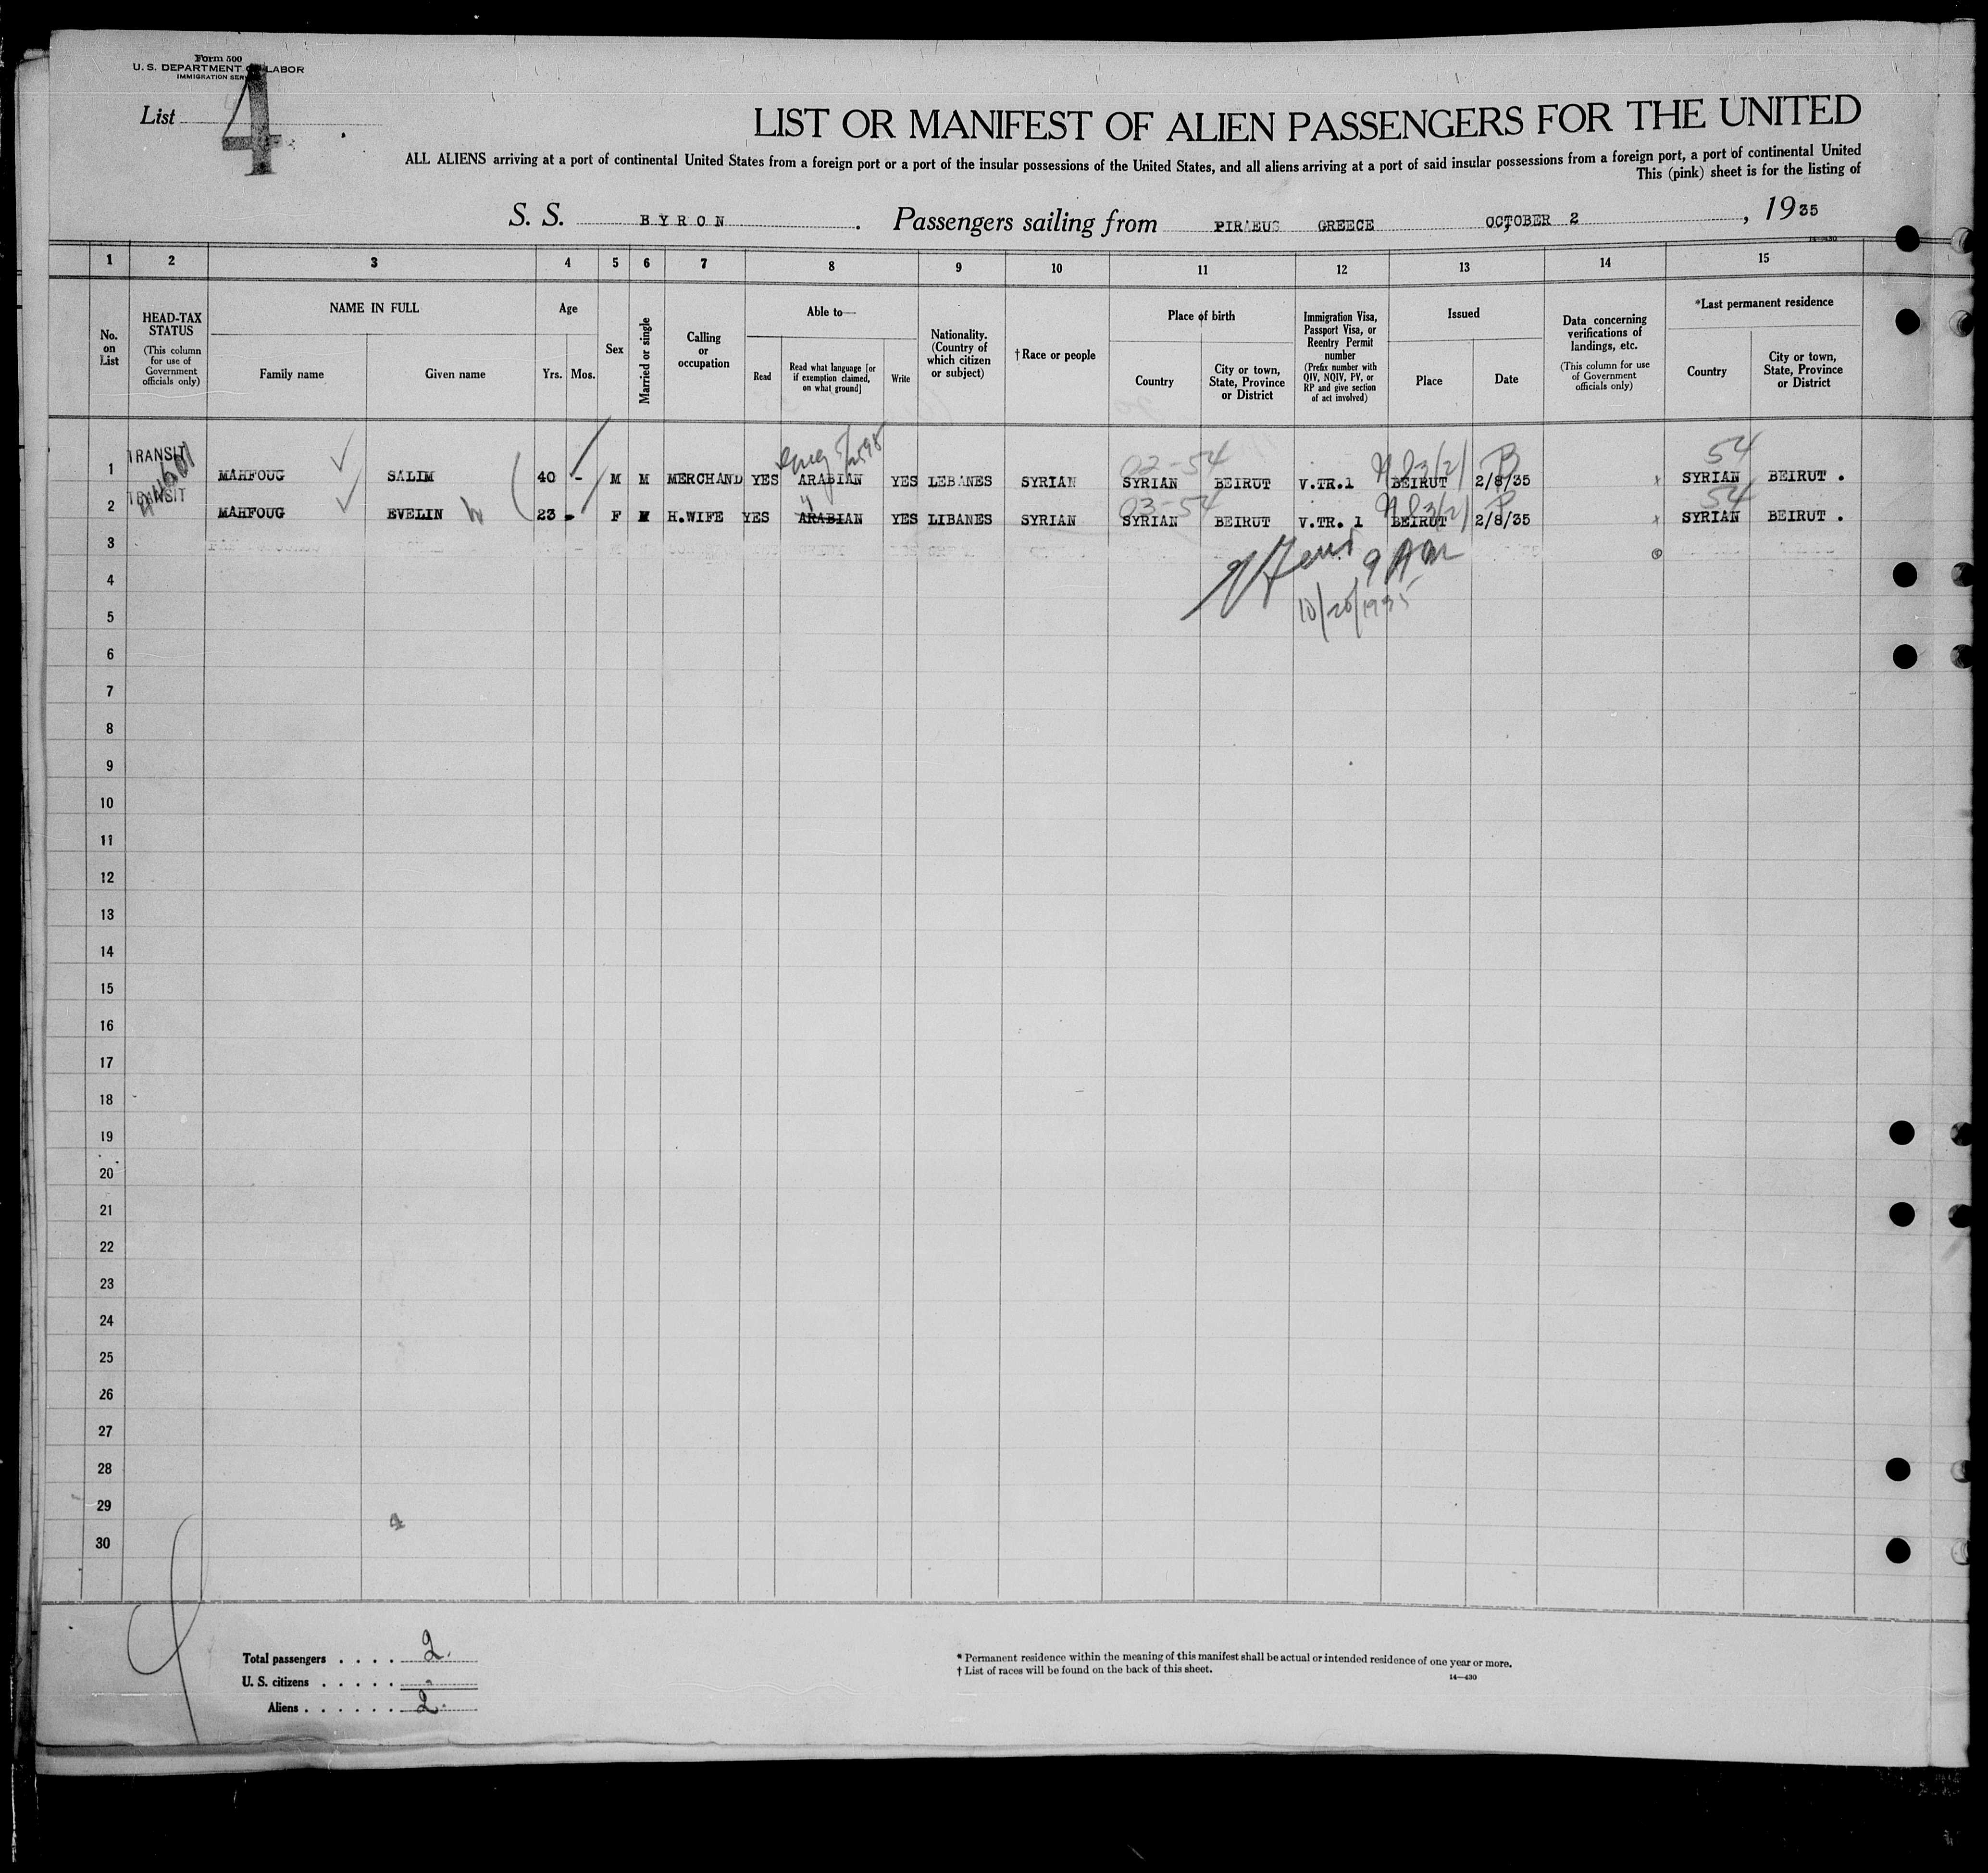 Form 500
U. S. DEPARTMENT OF LABOR
IMMIGRATION SERVICE
List 4
LIST OR MANIFEST OF ALIEN PASSENGERS FOR THE UNITED
ALL ALIENS arriving at a port of continental United States from a foreign port or a port of the insular possessions of the United States, and all aliens arriving at a port of said insular possessions from a foreign port, a port of continental United
This (pink) sheet is for the listing of
S. S. BYRON. Passengers sailing from PIRAEUS GREECE OCTOBER 2, 1935
14—430
1 2 3 4 5 6 7 8 9 10 11 12 13 14 15
No. on List
HEAD-TAX STATUS
(This column for use of Government officials only)
NAME IN FULL
Family name Given name
Age
Yrs. Mos.
Sex
Married or single
Calling or occupation
Able to—
Read Read what language [or if exemption claimed, on what ground] Write
Nationality. (Country of which citizen or subject)
†Race or people
Place of birth
Country City or town, State, Province or District
Immigration Visa, Passport Visa, or Reentry Permit number
(Prefix number with QIV, NQIV, PV, or RP and give section of act involved)
Issued
Place Date
Data concerning verifications of landings, etc.
(This column for use of Government officials only)
*Last permanent residence
Country City or town, State, Province or District
02-54 54
1 TRANSIT MAHFOUG SALIM 40 - M M MERCHAND YES ARABIAN YES LEBANES SYRIAN SYRIAN BEIRUT V.TR.1 BEIRUT 2/8/35 SYRIAN BEIRUT .
03-54 54
2 TRANSIT MAHFOUG EVELIN W 23 - F M H.WIFE YES ARABIAN YES LIBANES SYRIAN SYRIAN BEIRUT V.TR. 1 BEIRUT 2/8/35 SYRIAN BEIRUT .
3
9 AM
4
10/20/1935
5
6
7
8
9
10
11
12
13
14
15
16
17
18
19
20
21
22
23
24
25
26
27
28
29
4
30
Total passengers . . . . 2.
U. S. citizens . . . . . -
Aliens . . . . . . 2.
* Permanent residence within the meaning of this manifest shall be actual or intended residence of one year or more.
† List of races will be found on the back of this sheet.
14—430